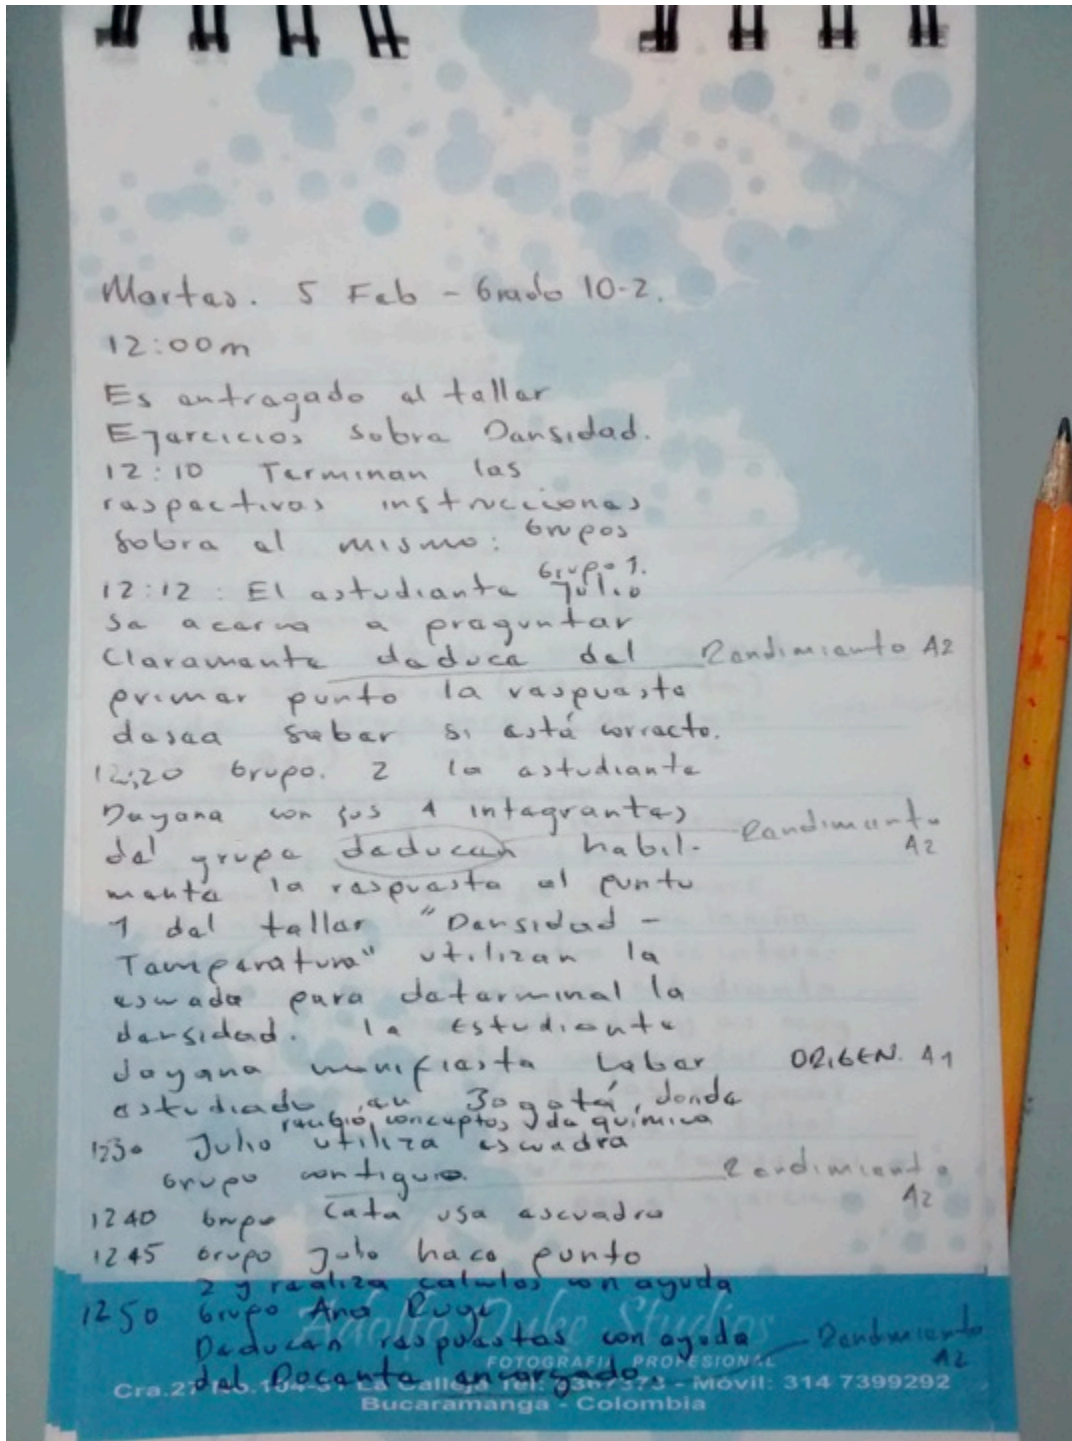 Martes. 5 Feb - Grado 10-2.
12:00m
Es entregado el taller
Ejercicios sobre Densidad.
12:10 Terminan las
respectivas instrucciones
sobre el mismo: Grupos
Grupo 1.
12:12 : El estudiante Julio
se acerca a preguntar
Claramente deduce del Rendimiento A2
primer punto la respuesta
desea saber si está correcto.
12:20 Grupo. 2 la estudiante
Dayana con sus 4 integrantes
del grupo deducen habil- Rendimiento A2
mente la respuesta al punto
1 del taller "Densidad -
Temperatura" utilizan la
escuada para determinal la
densidad. la Estudiante
dayana manifiesta haber ORIGEN. A1
estudiado en Bogotá, donde
recibió conceptos de química
1230 Julio utiliza escuadra
Grupo contiguo. Rendimiento A2
1240 Grupo Cata usa escuadra
1245 Grupo Julio hace punto
2 y realiza calculos con ayuda
1250 Grupo Ana Ruge
Deducen respuestas con ayuda Rendimiento A2
del Docente encargado.
Duke Studios
FOTOGRAFIA PROFESIONAL
Cra.27 La Calleja Tel: - Móvil: 314 7399292
Bucaramanga - Colombia